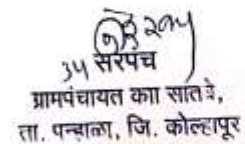 सरपंच
ग्रामपंचायत का सातवे,
ता. पन्हाळा, जि. कोल्हापूर